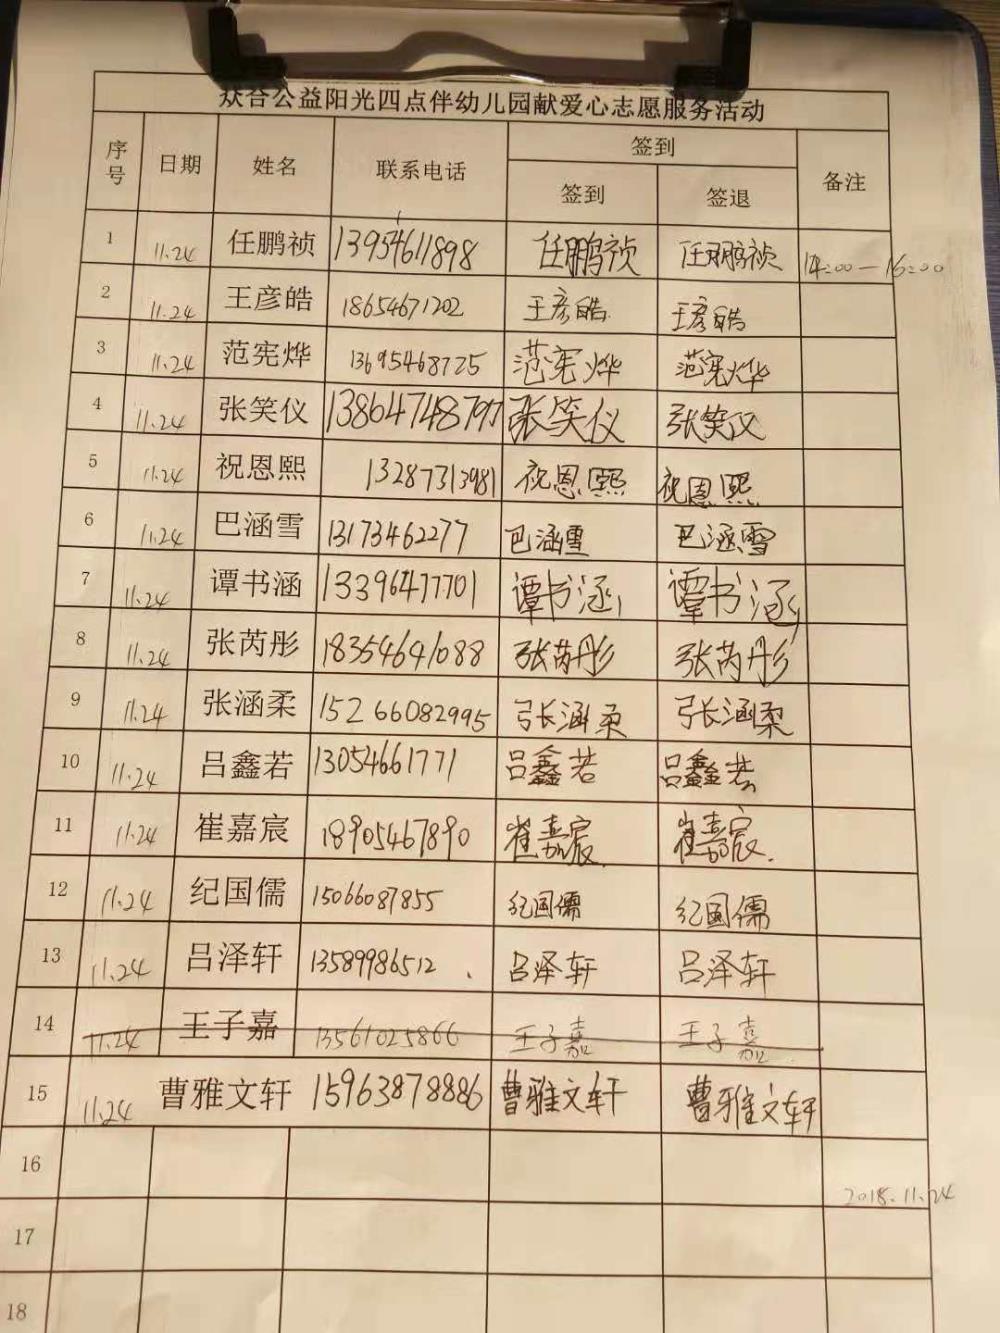 众合公益阳光四点伴幼儿园献爱心志愿服务活动
序号 日期 姓名 联系电话 签到 备注
签到 签退
1 11.24 任鹏祯 13954611898 任鹏祯 任鹏祯 14:00—16:00
2 11.24 王彦皓 18654671202 王彦皓 王彦皓
3 11.24 范宪烨 13695468725 范宪烨 范宪烨
4 11.24 张笑仪 13864748797 张笑仪 张笑仪
5 11.24 祝恩熙 13287313981 祝恩熙 祝恩熙
6 11.24 巴涵雪 13173462277 巴涵雪 巴涵雪
7 11.24 谭书涵 13396477701 谭书涵 谭书涵
8 11.24 张芮彤 18354641088 张芮彤 张芮彤
9 11.24 张涵柔 15266082995 张涵柔 张涵柔
10 11.24 吕鑫若 13054661771 吕鑫若 吕鑫若
11 11.24 崔嘉宸 18905467890 崔嘉宸 崔嘉宸
12 11.24 纪国儒 15066087855 纪国儒 纪国儒
13 11.24 吕泽轩 13589986512 吕泽轩 吕泽轩
14 11.24 王子嘉 13561025866 王子嘉 王子嘉
15 11.24 曹雅文轩 15963878886 曹雅文轩 曹雅文轩
16
2018.11.24
17
18